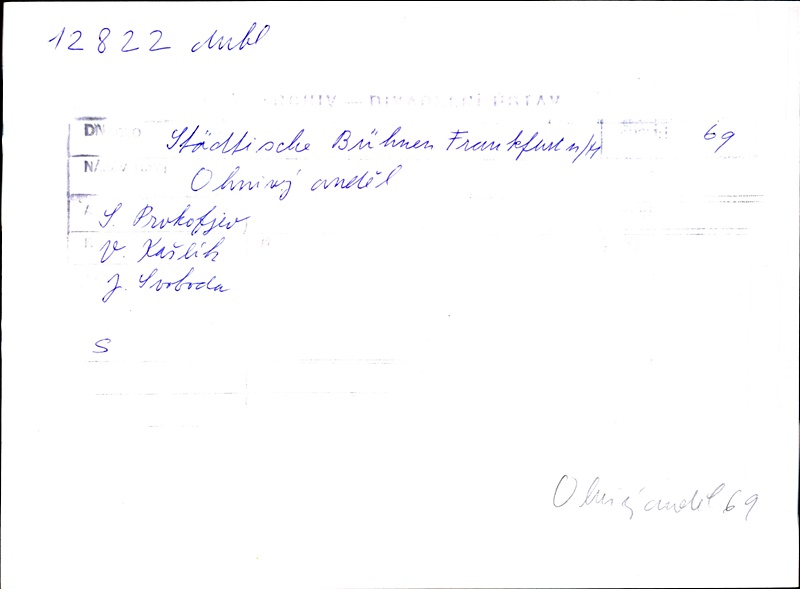 12822
DIVADELNÍ ÚSTAV
Städtische Bühnen Frankfurt n/M 69
Ohnivý anděl
S. Prokofjev
V. Kašlík
J. Svoboda
S
Ohnivý anděl 69